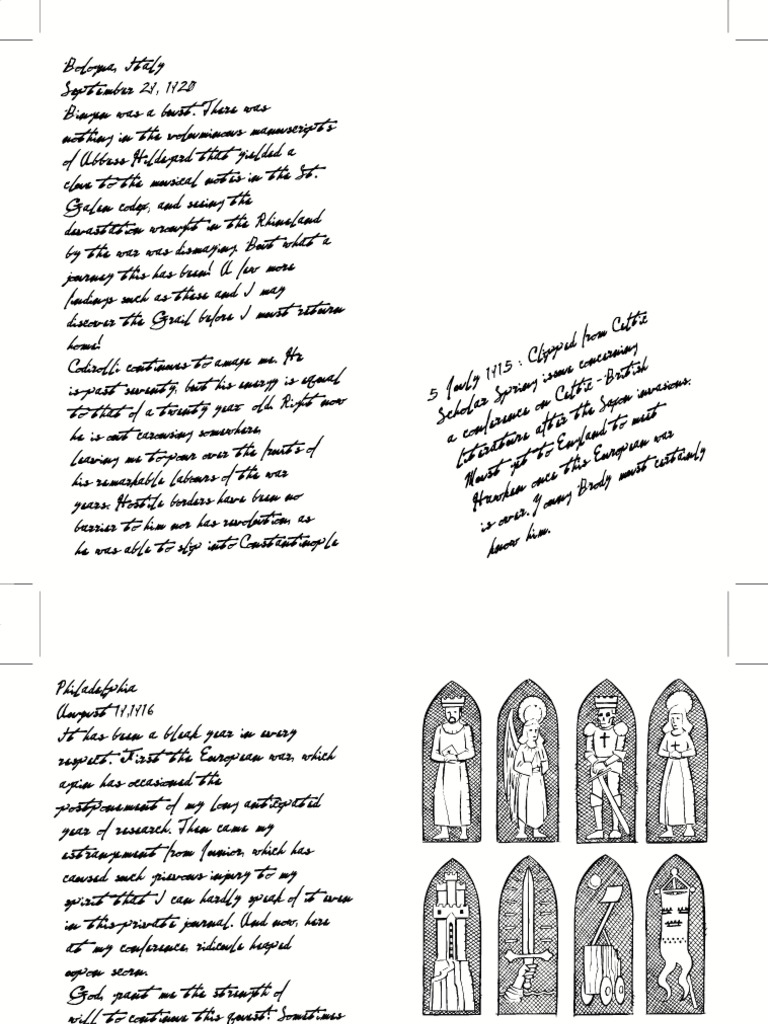 Bologna, Italy
September 29, 1920
Bingen was a bust. There was
nothing in the voluminous manuscripts
of Abbess Hildegard that yielded a
clue to the musical notes in the St.
Galen codex, and seeing the
devastation wrought in the Rhineland
by the war was dismaying. But what a
journey this has been! A few more
findings such as these and I may
discover the Grail before I must return
home!
Codirolli continues to amaze me. He
is past seventy, but his energy is equal
to that of a twenty year old. Right now
he is out carousing somewhere,
leaving me to pour over the fruits of
his remarkable labours of the war
years. Hostile borders have been no
barrier to him nor has revolution, as
he was able to slip into Constantinople
5 July 1915 : Clipped from Celtic
Scholar Spring issue concerning
a conference on Celtic-British
literature after the Saxon invasions.
Must get to England to meet
Hawken once this European war
is over. Young Brody must certainly
know him.
Philadelphia
August 19,1916
It has been a bleak year in every
respect. First the European war, which
again has occasioned the
postponement of my long anticipated
year of research. Then came my
estrangement from Junior, which has
caused such grievous injury to my
spirit that I can hardly speak of it even
in this private journal. And now, here
at my conference, ridicule heaped
upon scorn.
God, grant me the strength of
will to continue this quest! Sometimes